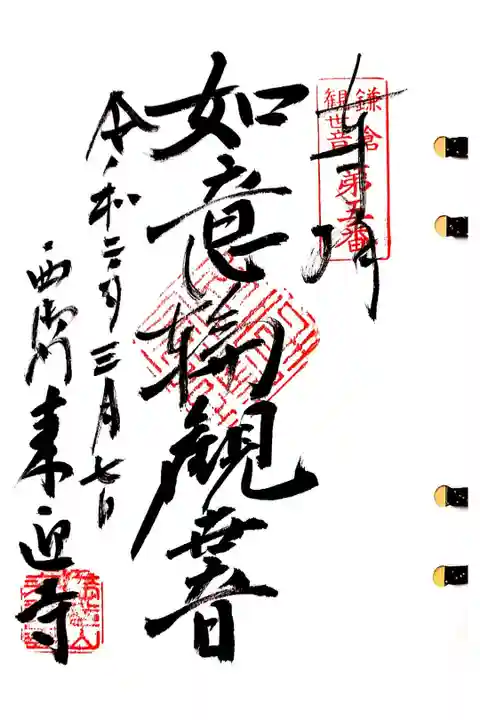 奉拝
鎌倉
観世音
第五番
如意輪観世音
令和二年三月七日
西御門 来迎寺